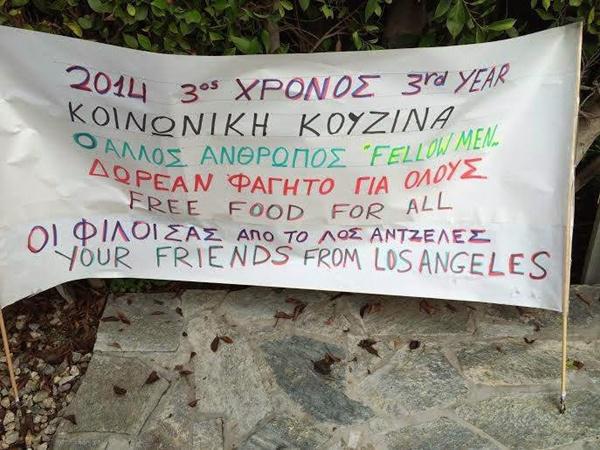 2014 3ος ΧΡΟΝΟΣ 3rd YEAR
ΚΟΙΝΩΝΙΚΗ ΚΟΥΖΙΝΑ
Ο ΑΛΛΟΣ ΑΝΘΡΩΠΟΣ "FELLOW MEN"
ΔΩΡΕΑΝ ΦΑΓΗΤΟ ΓΙΑ ΟΛΟΥΣ
FREE FOOD FOR ALL
ΟΙ ΦΙΛΟΙ ΣΑΣ ΑΠΟ ΤΟ ΛΟΣ ΑΝΤΖΕΛΕΣ
YOUR FRIENDS FROM LOS ANGELES